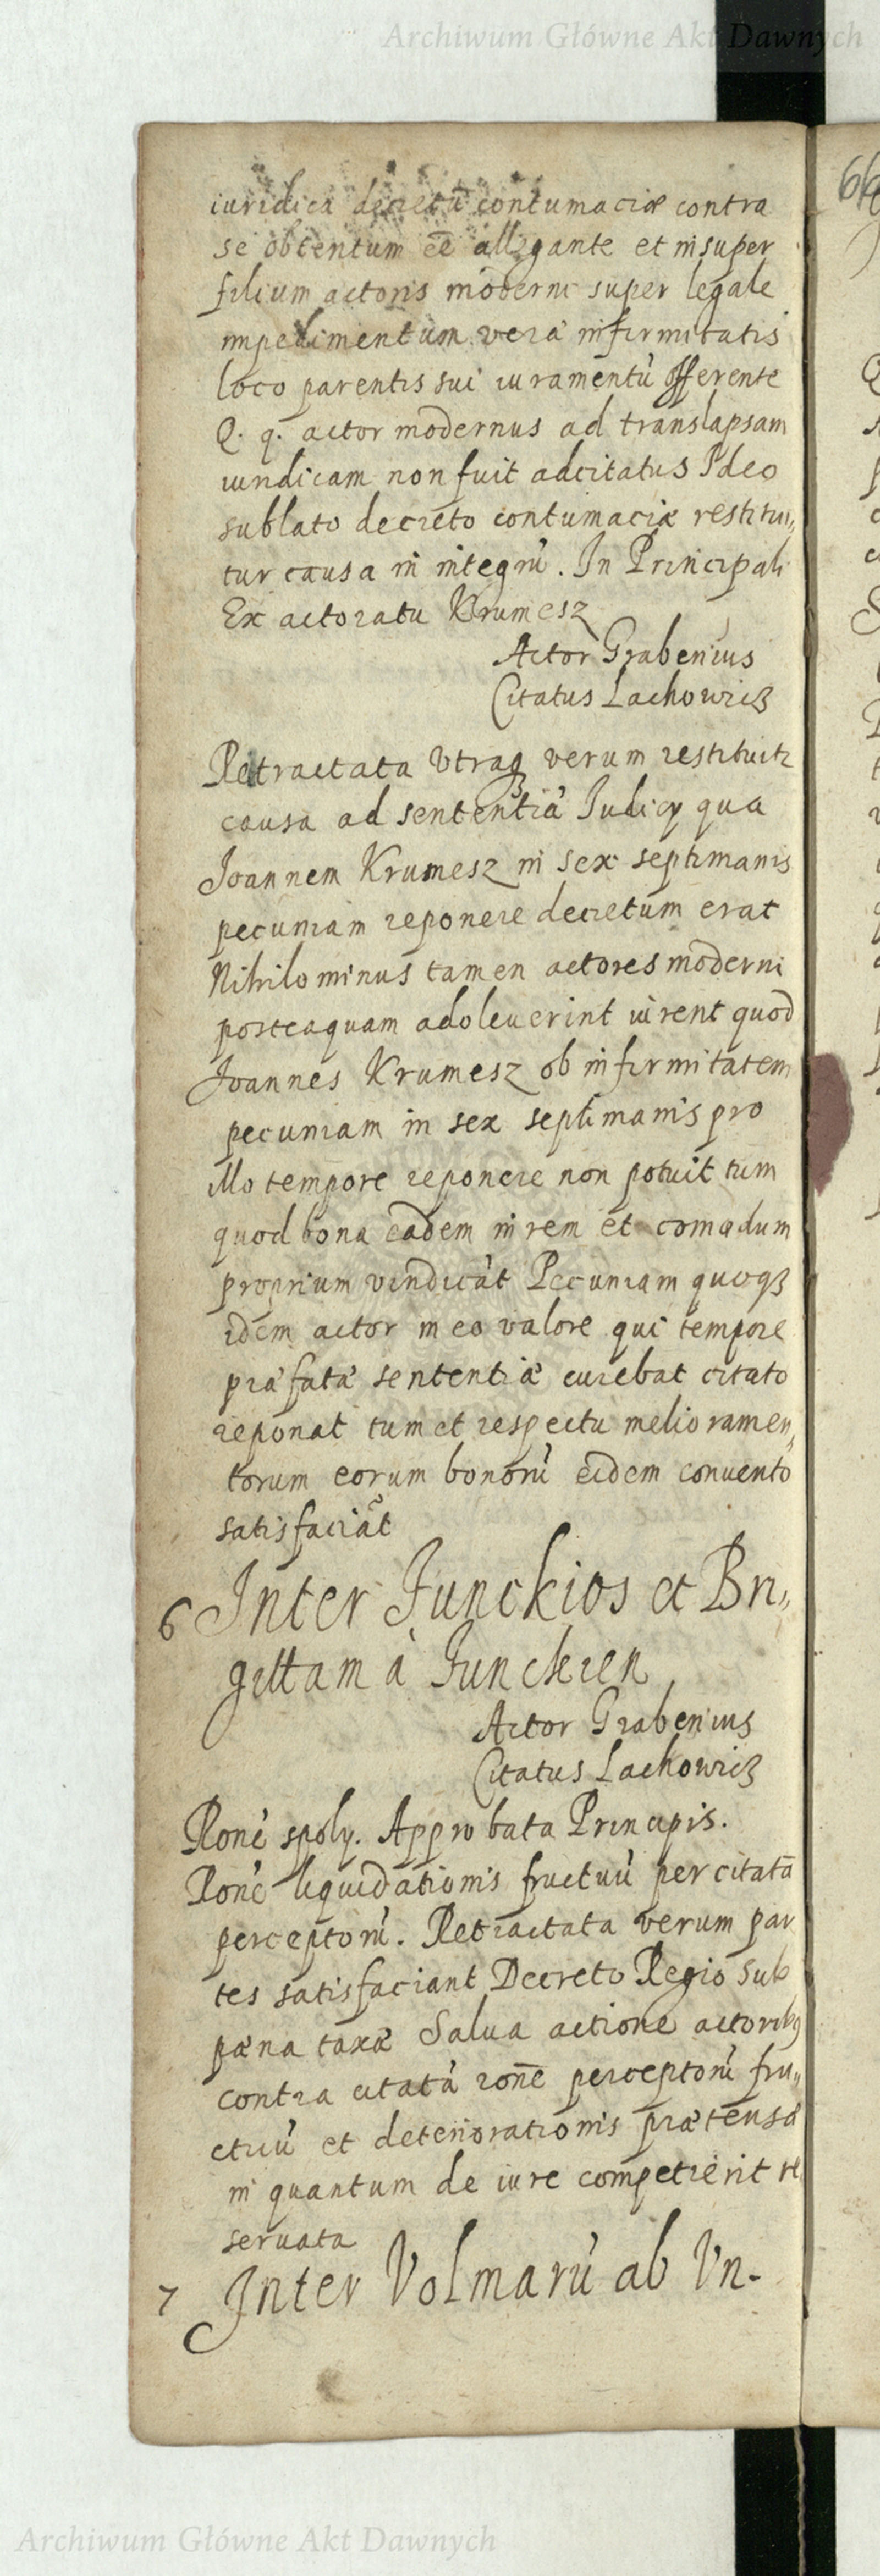 Archiwum Główne Akt Dawnych
iuridica decretũ contumaciæ contra
se obtentum eẽ allegante et insuper
filium actoris moderni super legale
impedimentum veræ infirmitatis
loco parentis sui iuramentũ offerente
Q. q. actor modernus ad translapsam
iuridicam non fuit adcitatus Ideo
sublato decreto contumaciæ restitui„
tur causa in integrũ. In Principali
Ex actoratu Krumesz
Actor Grabenius
Citatus Lachowicz
Retractata Vtraqȝ verum restituitr
causa ad sententiã Iudicy qua
Joannem Krumesz in sex septimanis
pecuniam reponere decretum erat
Nihilominus tamen actores moderni
posteaquam adoleuerint iurent quod
Joannes Krumesz ob infirmitatem
pecuniam in sex septimanis pro
illo tempore reponere non potuit tum
quod bona eadem in rem et comodum
proprium vindicãt Pecuniam quoqȝ
idem actor in eo valore qui tempore
præfatæ sententiæ currebat citato
reponat tum et respectu melioramen„
torum eorum bonorũ eidem conuento
satisfaciãt
6 Inter Junckios et Bri„
gittam à Junckien
Actor Grabenius
Citatus Lachowicz
Rone spoly. Approbata Principis.
Rone liquidationis fructuũ per citatã
perceptorũ. Retractata verum par
tes satisfaciant Decreto Regio sub
pæna taxæ Salua actione actoribȝ
contra citatã rone perceptorũ fru„
ctuũ et deteriorationis prætensæ
in quantum de iure competierit re
seruata
7 Inter Volmarũ ab Vn-
66
Archiwum Główne Akt Dawnych